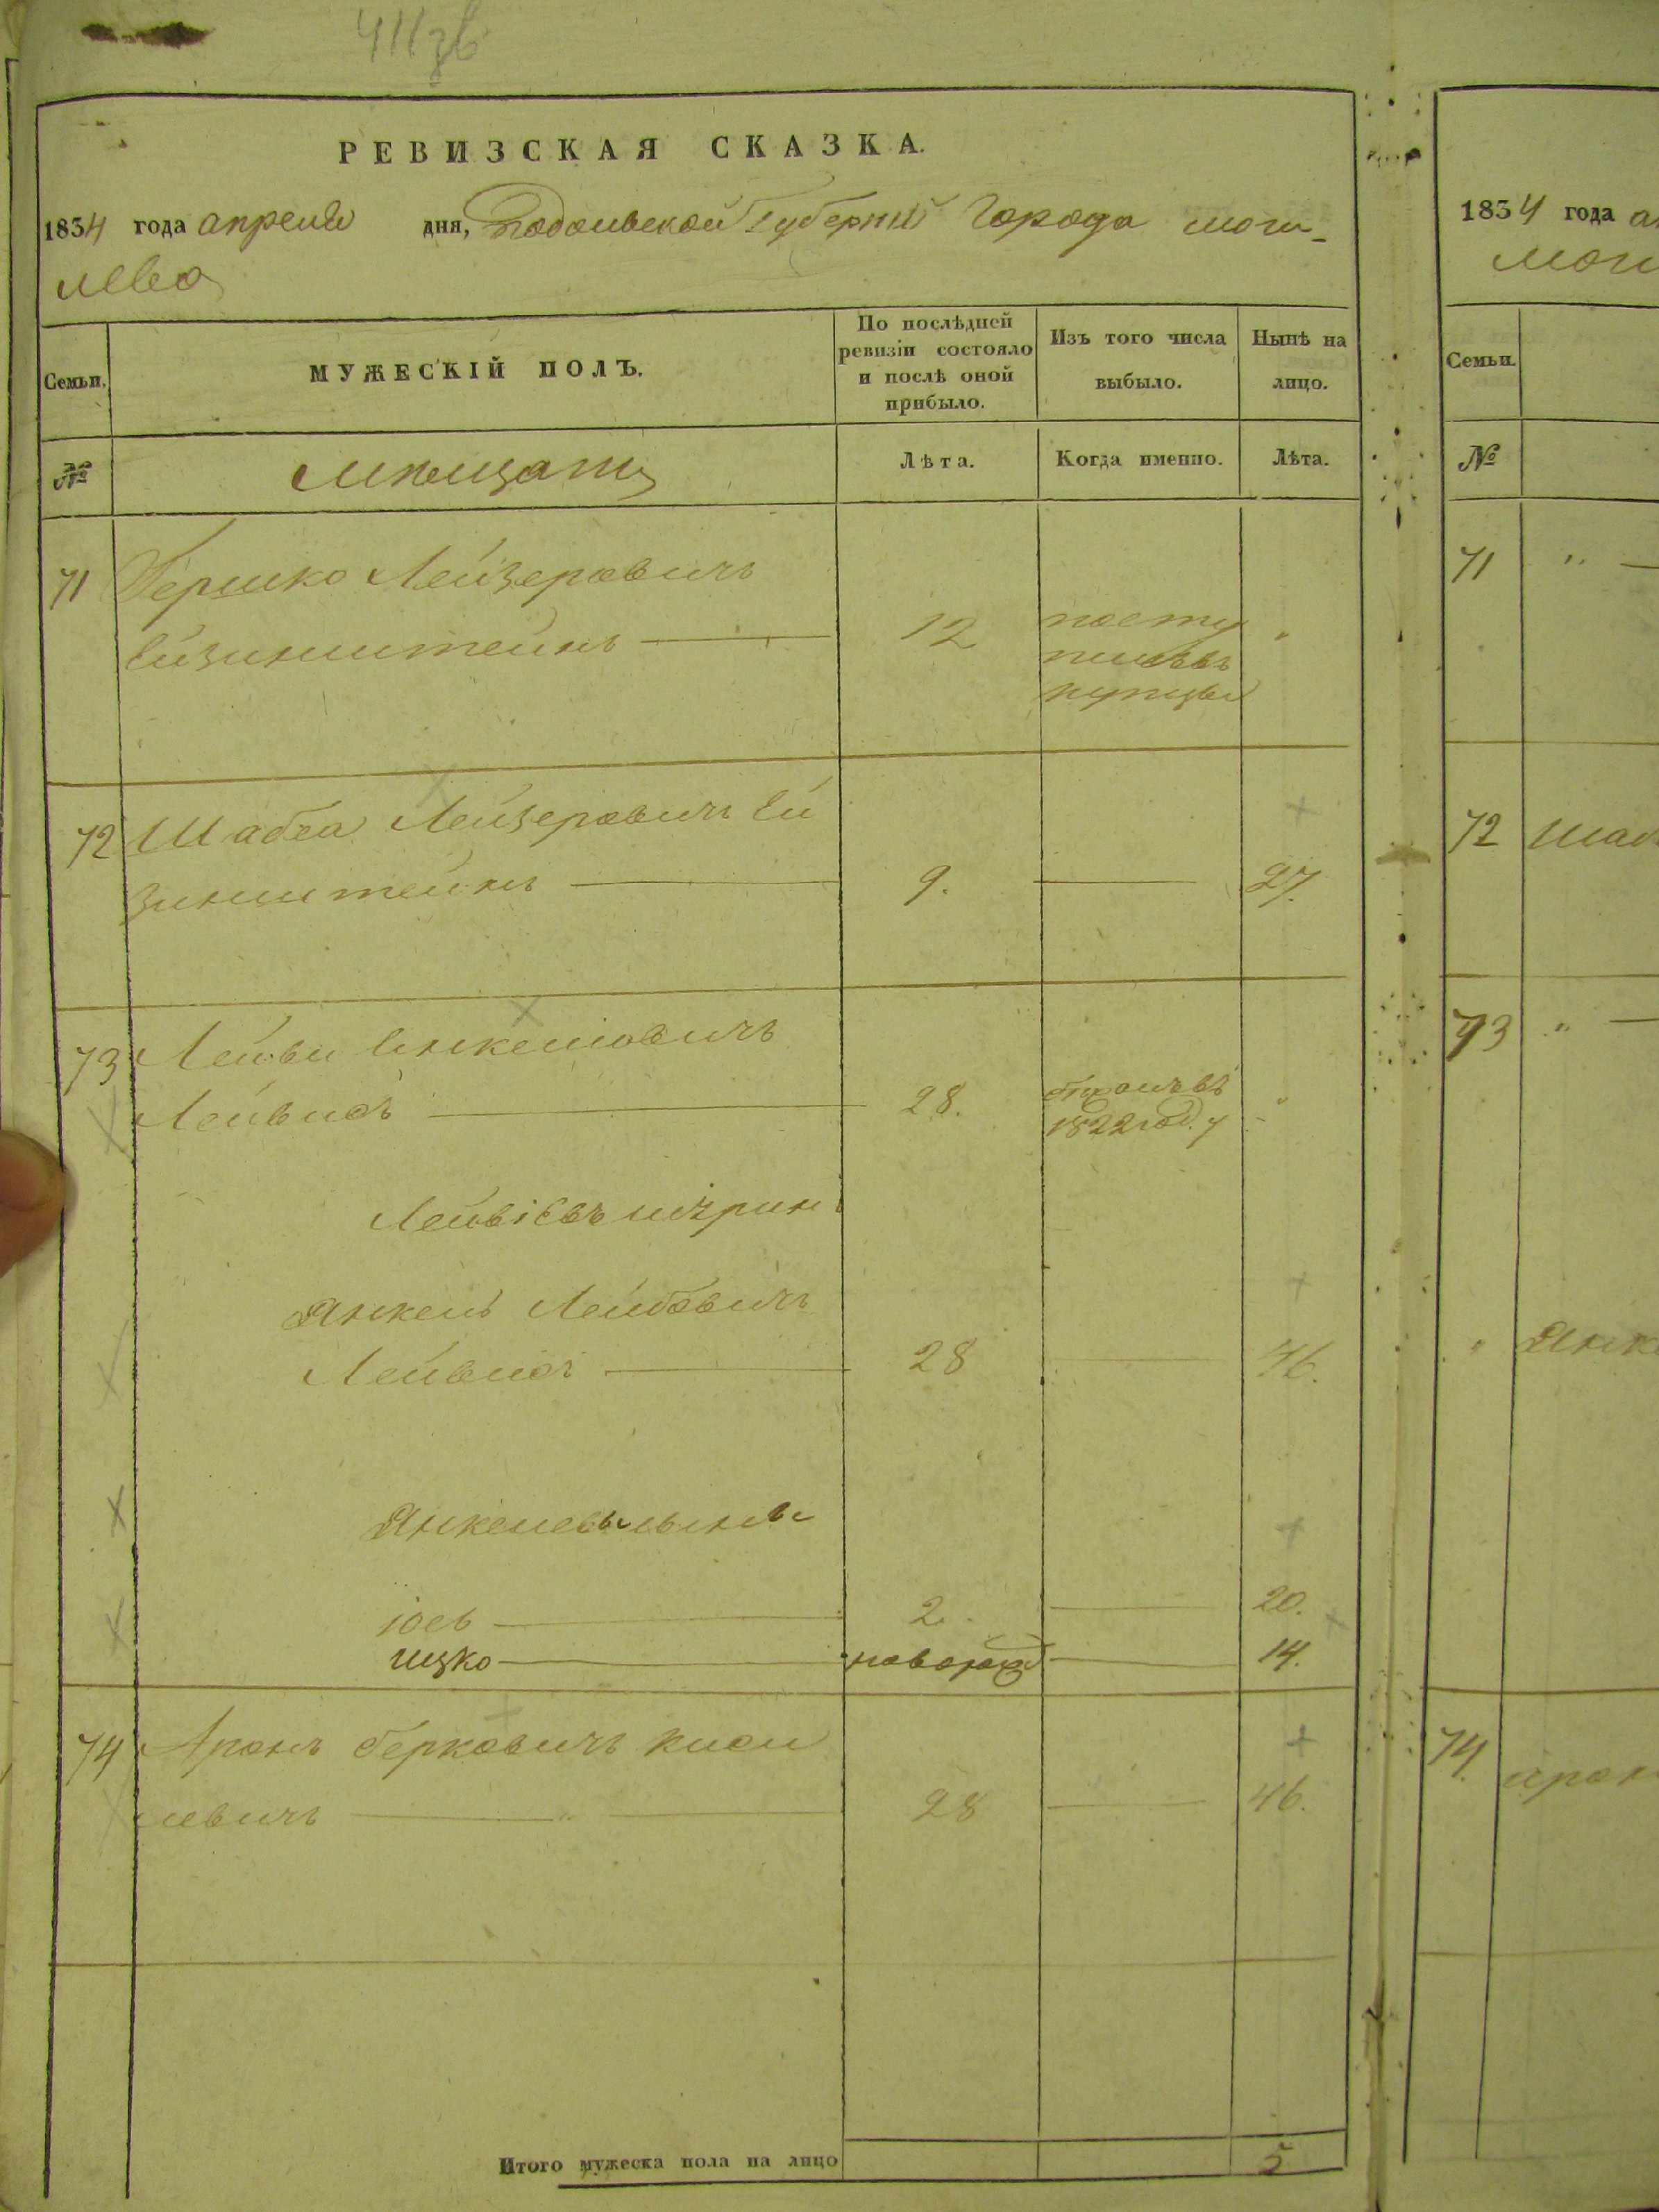 411зв
РЕВИЗСКАЯ СКАЗКА.
1834 года апреля дня, Подольской Губернии Города моги-
лева
Семьи.
МУЖЕСКІЙ ПОЛЪ.
По послѣдней ревизіи состояло и послѣ оной прибыло.
Изъ того числа выбыло.
Нынѣ на лицо.
№
Мпещане
Лѣта.
Когда именно.
Лѣта.
71 Гершко Лейзеровичъ
Ейзинштейнъ 12 посту
пилъ въ
купцы
72 Шабса Лейзеровичъ Ей
зинштейнъ 9. 27.
73 Лейви Янкелiовичъ
Лейвисъ 28. 1822 году
Лейвіевъ
Янкель Лейбовичъ
Лейвисъ 28 46.
Янкелевы сыны
іось 2. 20.
ицко новорож 14.
74 Аронъ берковичъ киси
левичъ 28 46.
Итого мужеска пола на лицо 5
1834 года
Семьи.
№
71
72
73
74.